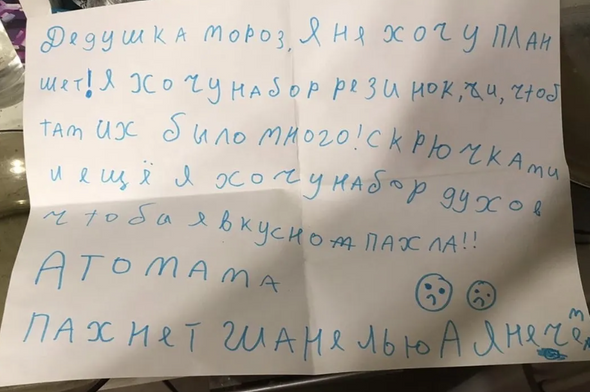 Дедушка мороз, я не хочу план
шет! Я хочу набор резинок, и, чтоб
там их било много! с крючками
и ещё я хочу набор духов
чтоби я вкусно пахла!!
А то мама
пахнет шанелью А я нечем